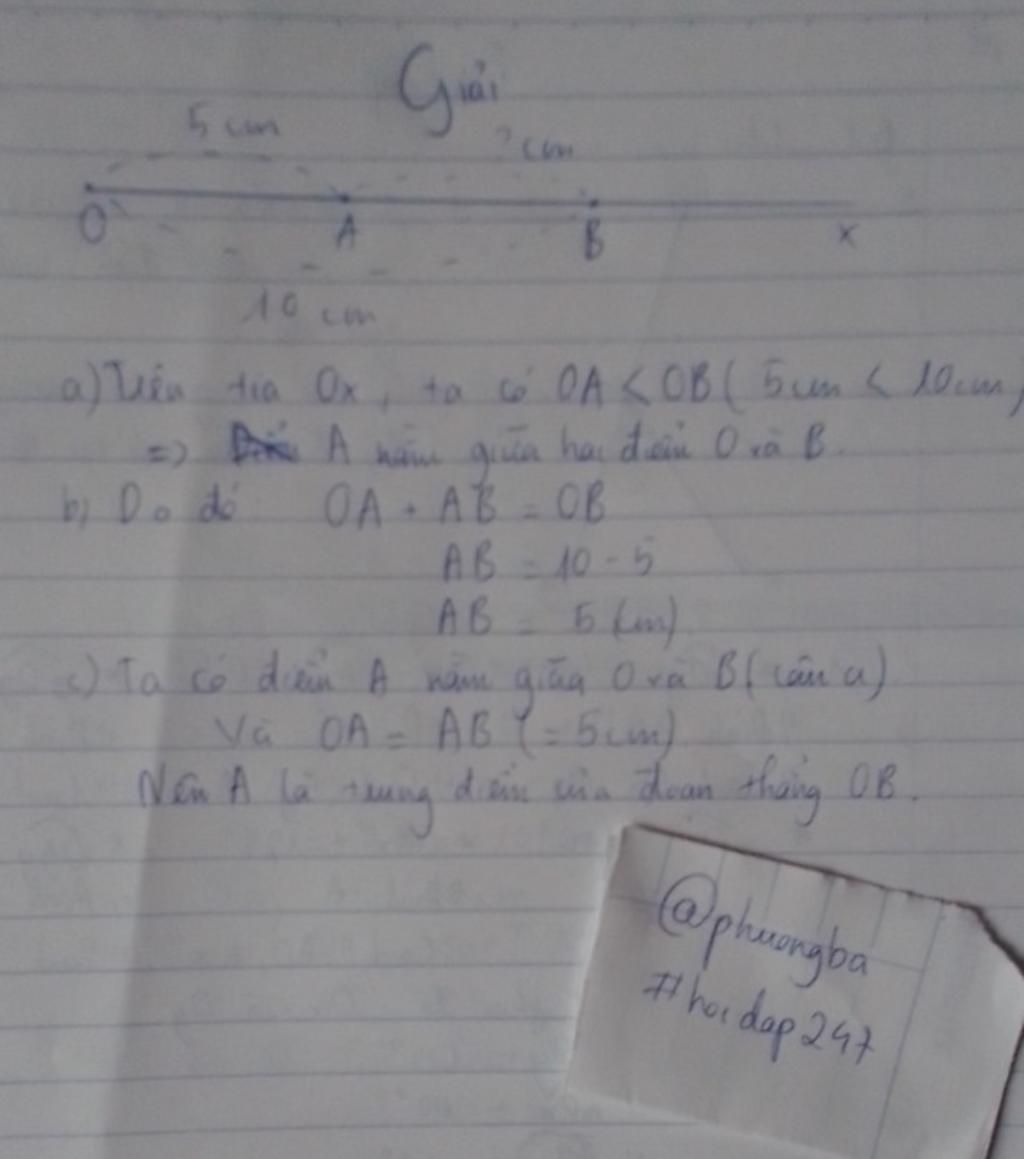 Giải
5 cm
? cm
O A B x
10 cm
a) Trên tia Ox, ta có OA < OB ( 5cm < 10cm)
=> A nằm giữa hai điểm O và B.
b) Do đó OA + AB = OB
AB = 10 - 5
AB = 5 (cm)
c) Ta có điểm A nằm giữa O và B ( câu a)
Và OA = AB (= 5cm)
Nên A là trung điểm của đoạn thẳng OB.
@phuongba
#hoidap247